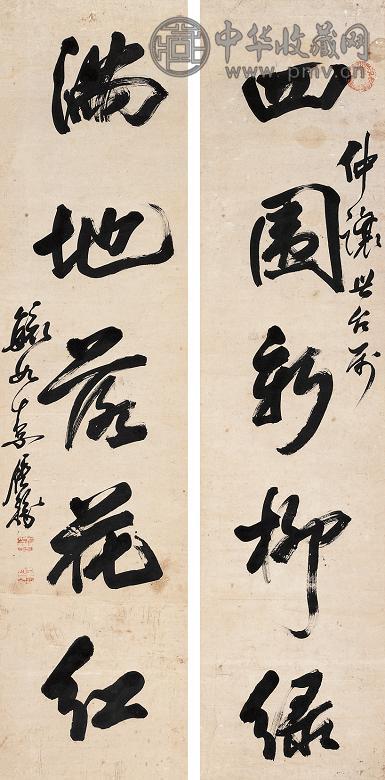 中华收藏网
www.pmv.cn
四圍新柳綠
仲讓世台
滿地落花紅
毓如李